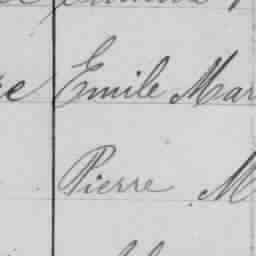 Emile Mar
Pierre M